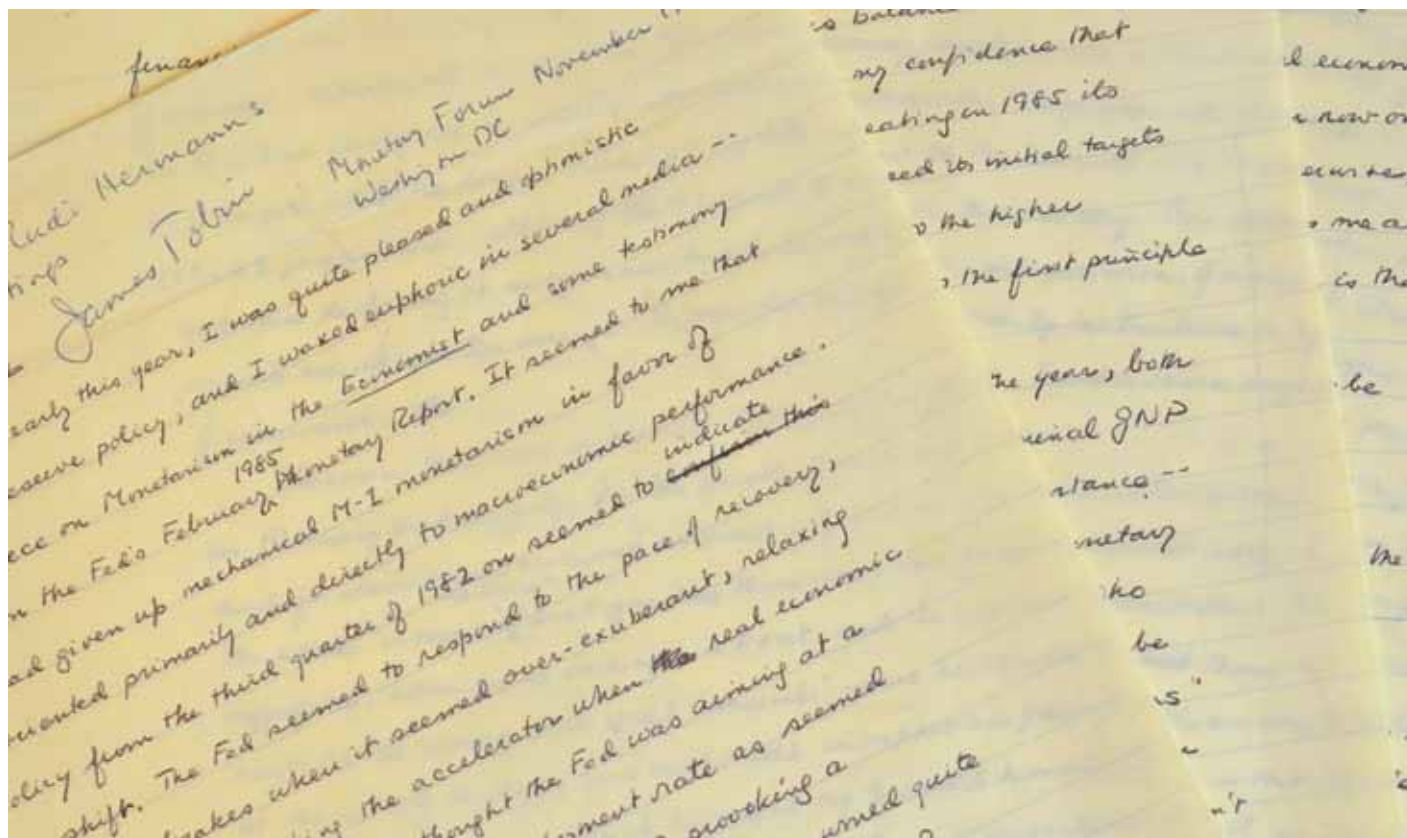 finan
Rudi Hermanns
tings
James Tobin Monetary Forum November
Washington DC
early this year, I was quite pleased and optimistic
eserve policy, and I waxed euphoric in several media --
ece on Monetarism in the Economist and some testimony
n the Fed's February 1985 Monetary Report. It seemed to me that
ad given up mechanical M-1 monetarism in favor of
oriented primarily and directly to macroeconomic performance.
olicy from the third quarter of 1982 on seemed to confirm this indicate
shift. The Fed seemed to respond to the pace of recovery,
rakes when it seemed over-exuberant, relaxing
ing the accelerator when the real economic
thought the Fed was aiming at a
loyment rate as seemed
provoking a
urned quite
s balance
ny confidence that
eating in 1985 its
eed its initial targets
o the higher
s the first principle
he year, both
minal GNP
stance --
netary
who
be
is"
n't
l econom
a now o
ecurites
s me a
is the
be
the